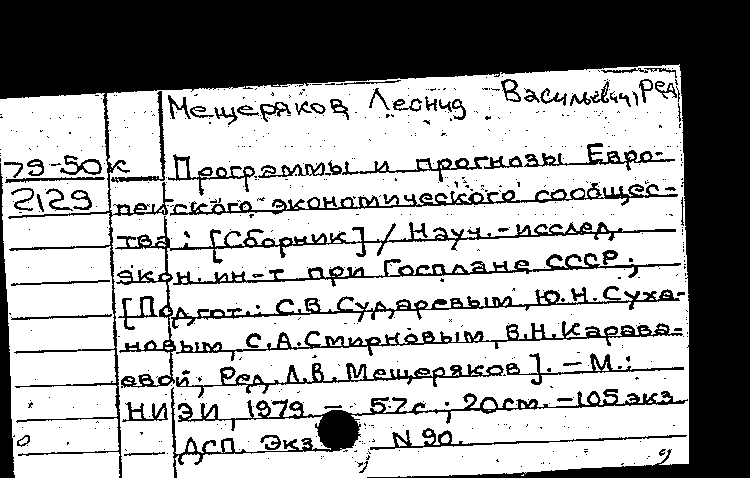 Мещеряков Леонид Васильевич, Ред
79-50к Программы и прогнозы Евро-
2129 пейского экономического сообщес-
тва: [Сборник] / Науч.-исслед.
экон. ин-т при Госплане СССР;
[Подгот.: С.В.Сударевым, Ю.Н.Суха-
новым, С.А.Смирновым, В.Н.Карава-
евой; Ред. Л.В.Мещеряков]. - М.:
НИЭИ, 1979. - 57с.; 20см. -105экз
ДСП. Экз N 90.